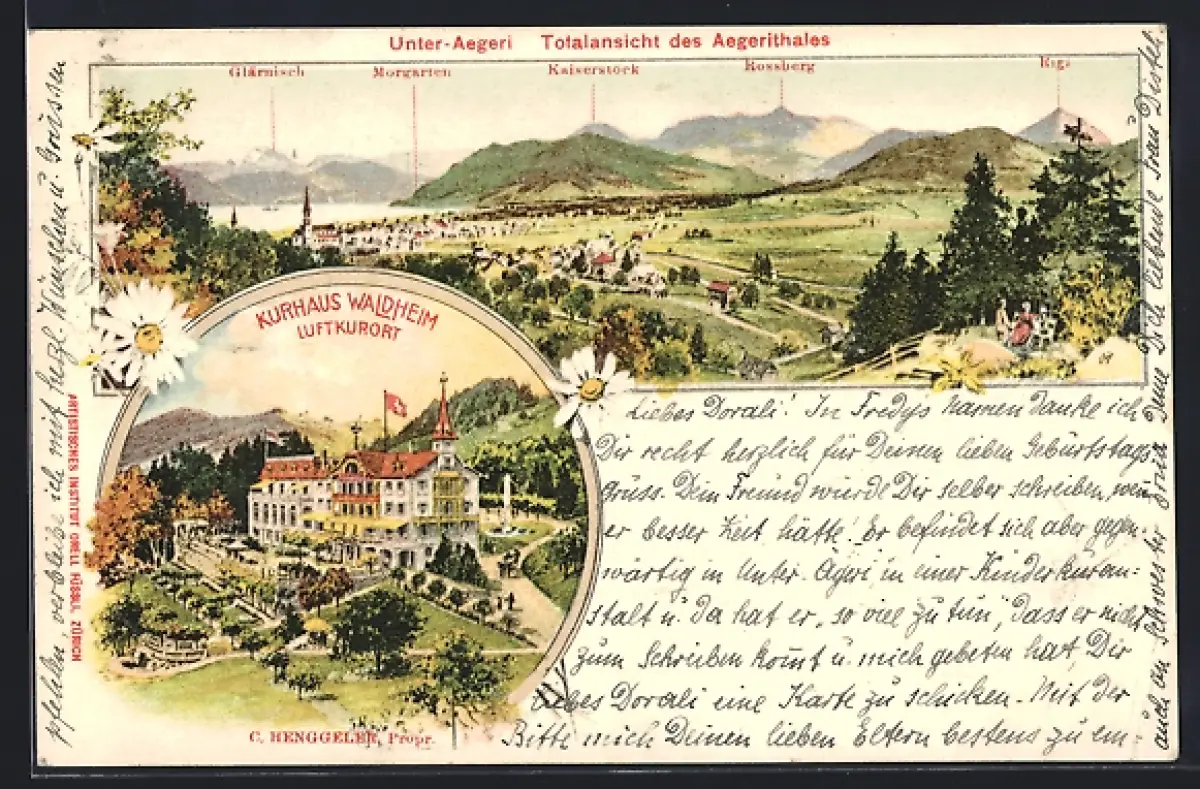 Unter-Aegeri Totalansicht des Aegerithales
Glärnisch Morgarten Kaiserstock Rossberg Rigi
KURHAUS WALDHEIM
LUFTKURORT
C. HENGGELER, Propr.
ARTISTISCHES INSTITUT ORELL FÜSSLI, ZÜRICH
Liebes Dorali! In Fredys Namen danke ich
Dir recht herzlich für Deinen lieben Geburtstags-
gruss. Dein Freund würde Dir selber schreiben, wenn
er besser Zeit hätte! Er befindet sich aber gegen-
wärtig in Unter-Ägeri in einer Kinderkuran=
stalt u. da hat er „so viel zu tun", dass er nicht
zum Schreiben komt u. mich gebeten hat, Dir
liebes Dorali eine Karte zu schicken. Mit der
Bitte mich Deinen lieben Eltern bestens zu em=
pfehlen, verbleibe ich mit herzl. Wünschen u. Grüssen
Deine Dich liebende Frau Distel
auch an Schwester